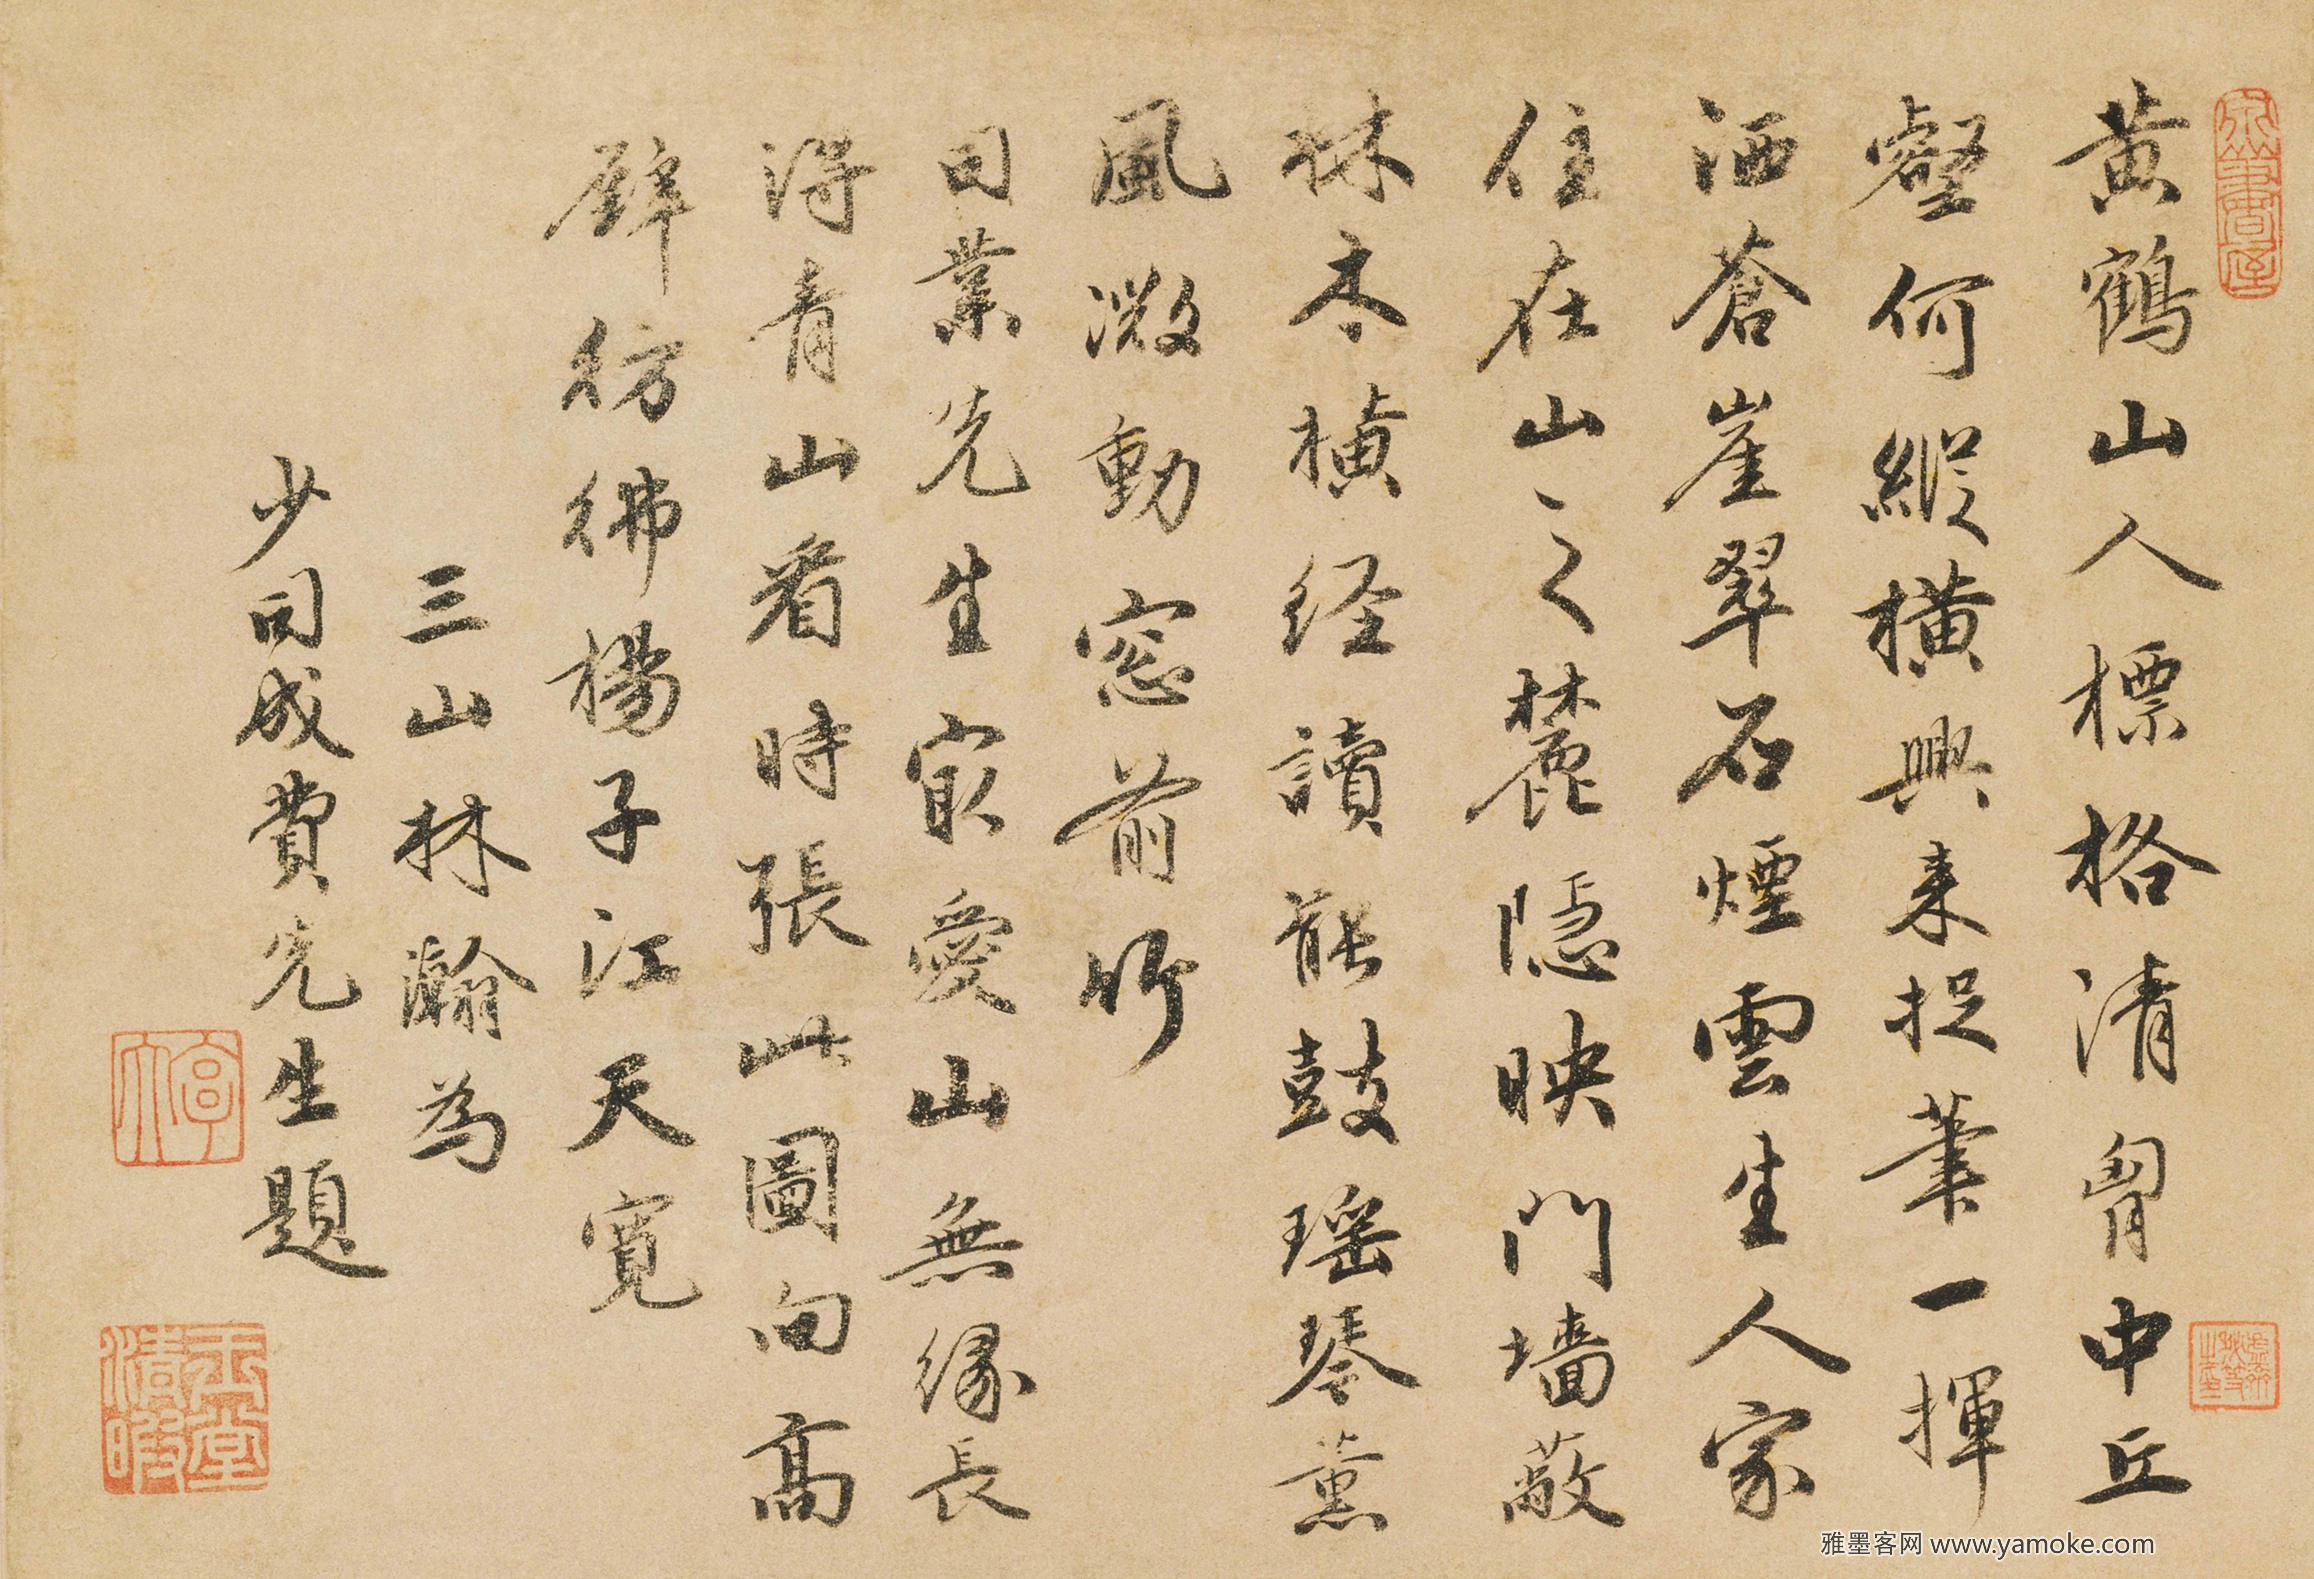 黄鶴山人標格清胷中丘
壑何縱橫興来捉筆一揮
洒蒼崖翠石煙雲生人家
住在山之麓隱映門墻蔽
林木橫经讀罷鼓瑶琴薰
風微動窓前竹
司業先生最愛山無緣長
得青山看時張此圖向高
壁彷彿楊子江天寬
三山林瀚為
少司成費先生題
亨大
玉堂清暇
雅墨客网 www.yamoke.com